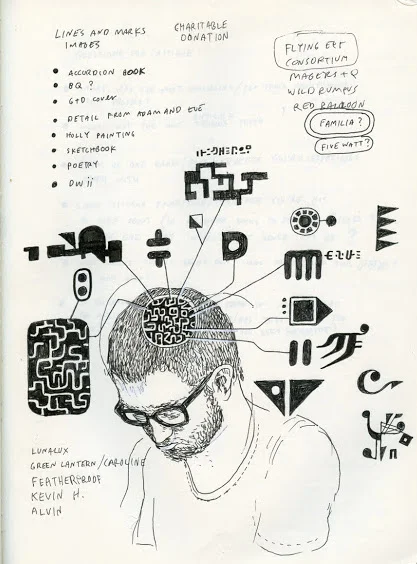 LINES AND MARKS
IMAGES
CHARITABLE
DONATION
ACCORDION BOOK
BQ ?
G+D COVER
DETAIL FROM ADAM AND EVE
HOLLY PAINTING
SKETCHBOOK
POETRY
DWii
FLYING
CONSORTIUM
MAGERS + Q
WILD RUMPUS
RED BALLOON
FAMILIA?
FIVE WATT?
LUNALUX
GREEN LANTERN/CAROLINE
FEATHERPROOF
KEVIN H.
ALVIN